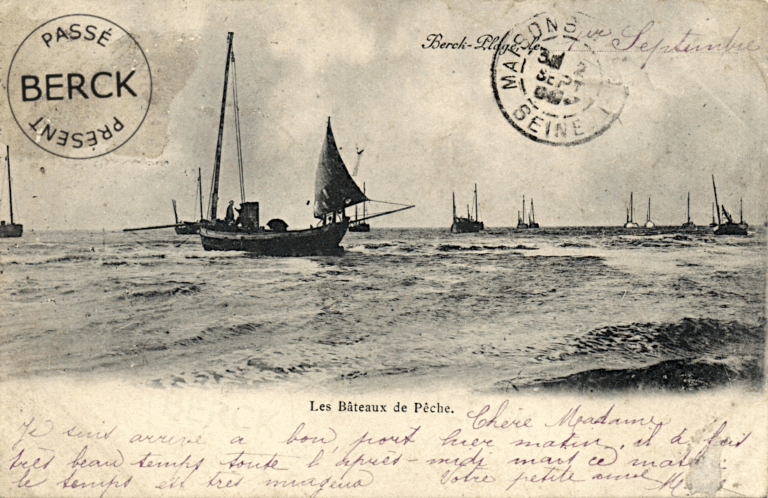 PASSÉ
BERCK
PRÉSENT
Berck-Plage, le 1er Septembre
MAISONS
2
SEPT
SEINE
Les Bâteaux de Pêche.
Chère Madame
Je suis arrivé a bon port hier matin, il à fait
très beau temps toute l'après-midi mais ce matin
le temps est très nuageux Votre petite amie